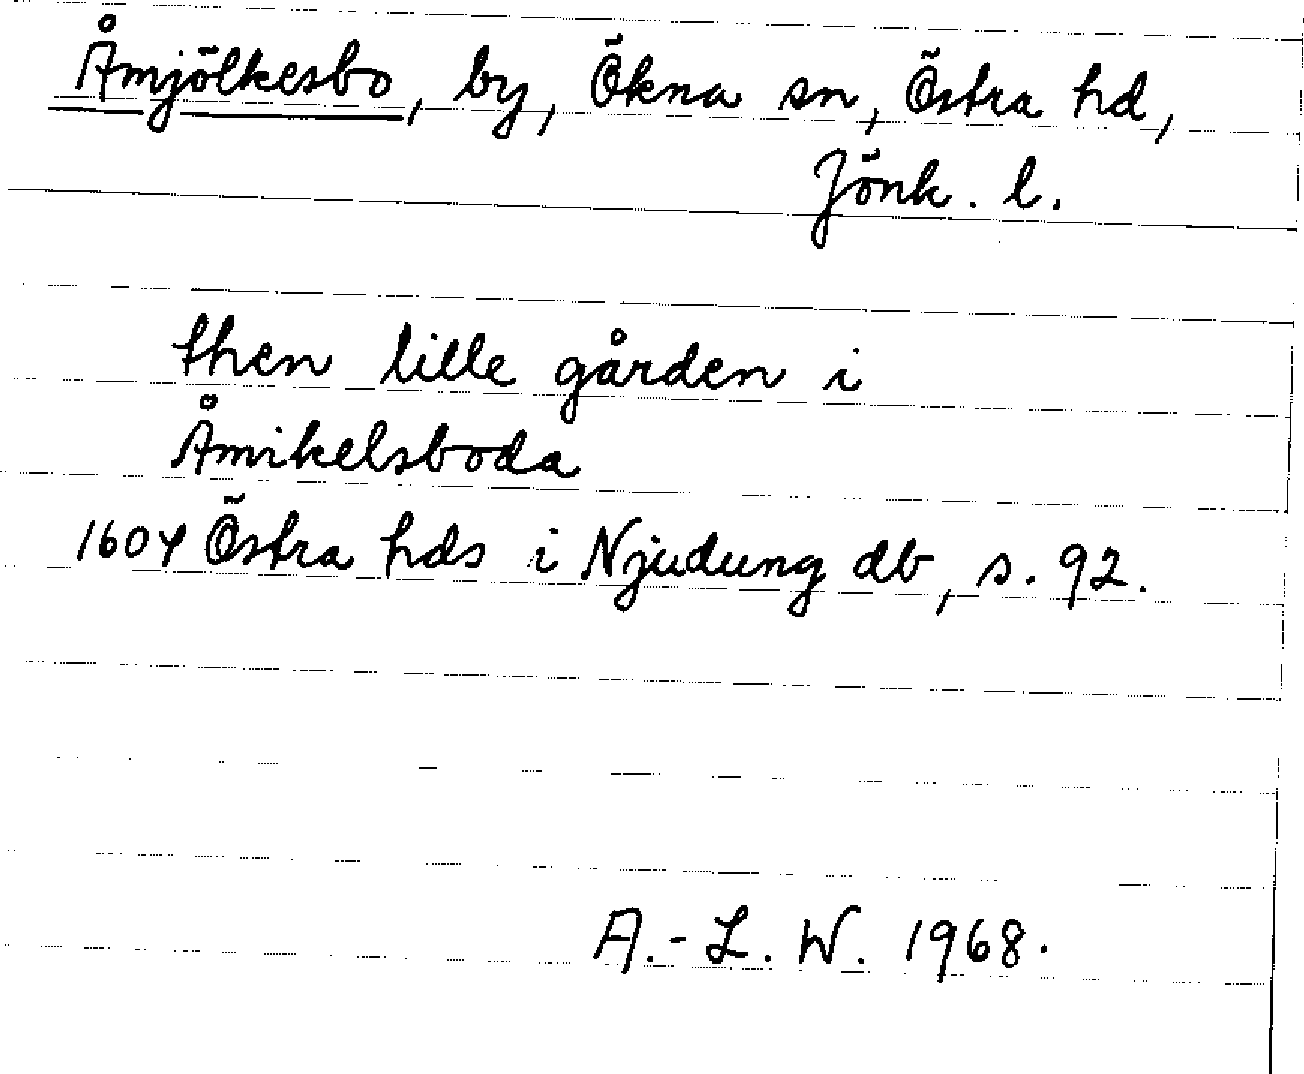 Åmjölkesbo, by, Ökna sn, Östra hd,
Jönk. l.
then lille gården i
Åmikelsboda
1604 Östra hds i Njudung db, s. 92.
A.-L. W. 1968.